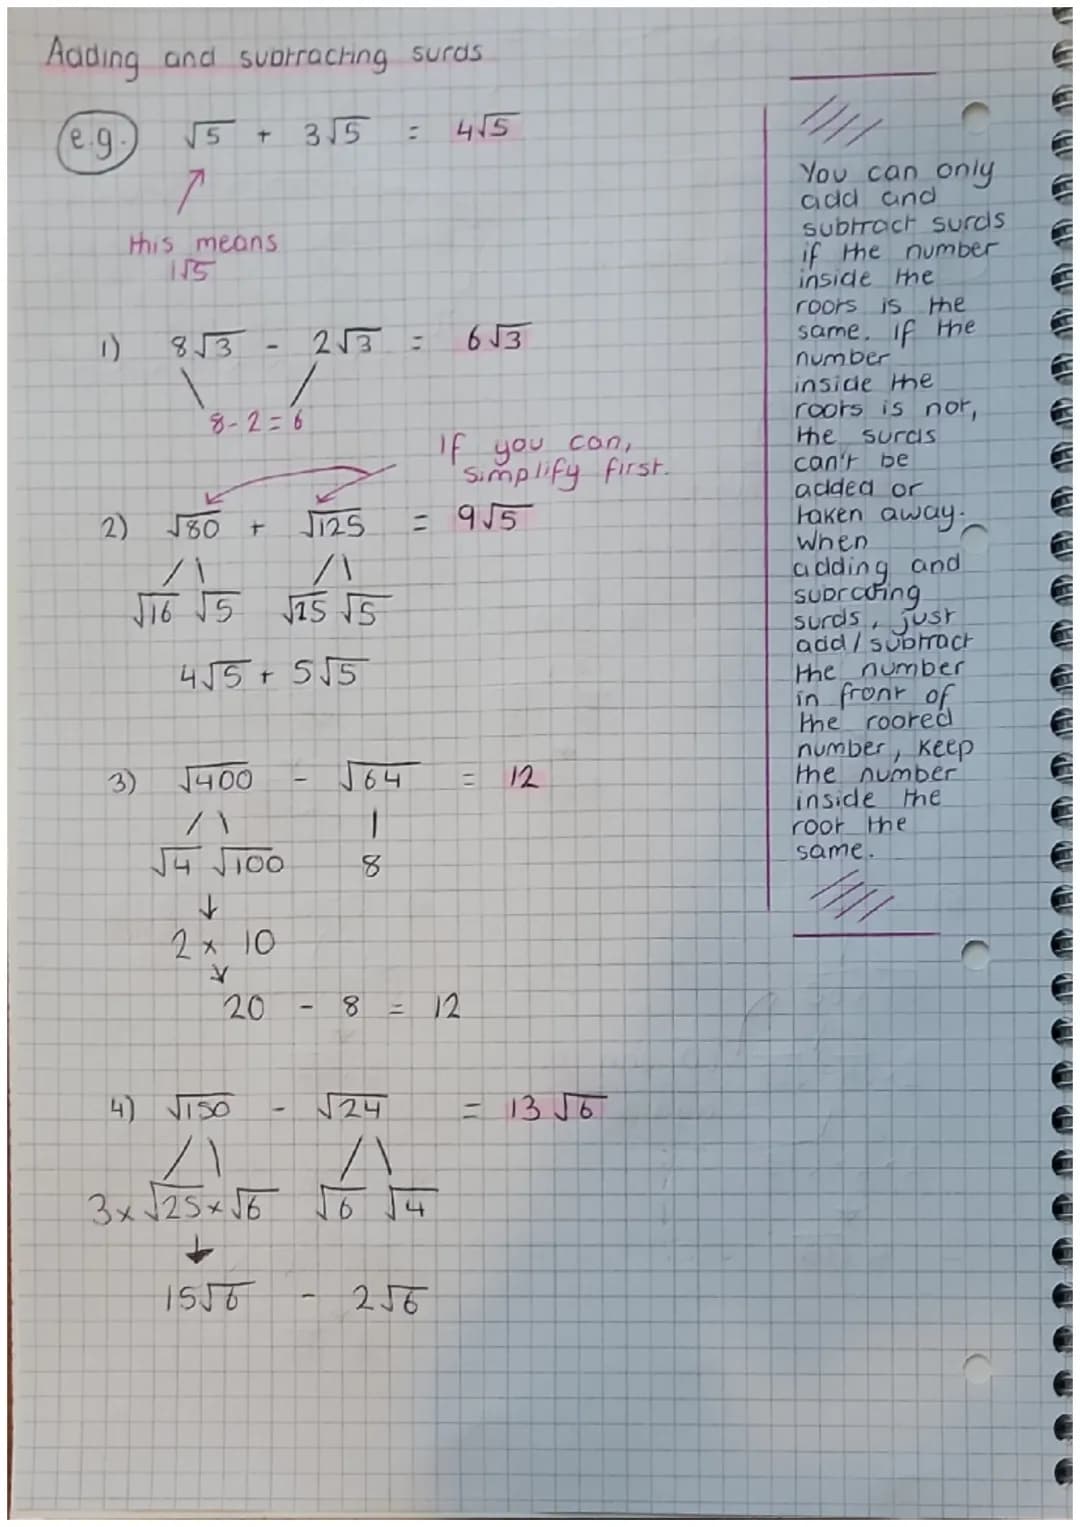 Adding and subtracting surds
e.g. √5 + 3√5 = 4√5
this means
1√5
1) 8√3 - 2√3 = 6√3
8-2=6
If you can,
simplify first.
2) √80 + √125 = 9√5
√16 √5 √25 √5
4√5 + 5√5
3) √400 - √64 = 12
√4 √100 8
2 × 10
20 - 8 = 12
4) √150 - √24 = 13√6
3×√25×√6 √6 √4
15√6 - 2√6
You can only
add and
subtract surds
if the number
inside the
roots is the
same. If the
number
inside the
roots is not,
the surds
can't be
added or
taken away.
When
adding and
subrating
surds, just
add/subtract
the number
in front of
the rooted
number, keep
the number
inside the
root the
same.